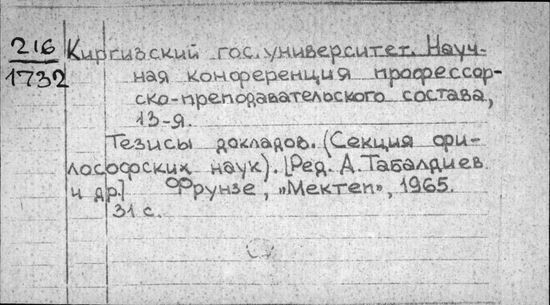 216
1732
Киргизский гос. университет. Науч-
ная конференция профессор-
ско-преподавательского состава,
13-я.
Тезисы докладов. (Секция фи-
лософских наук). [Ред. А. Табалдиев
и др.] Фрунзе, „Мектеп", 1965.
31 с.